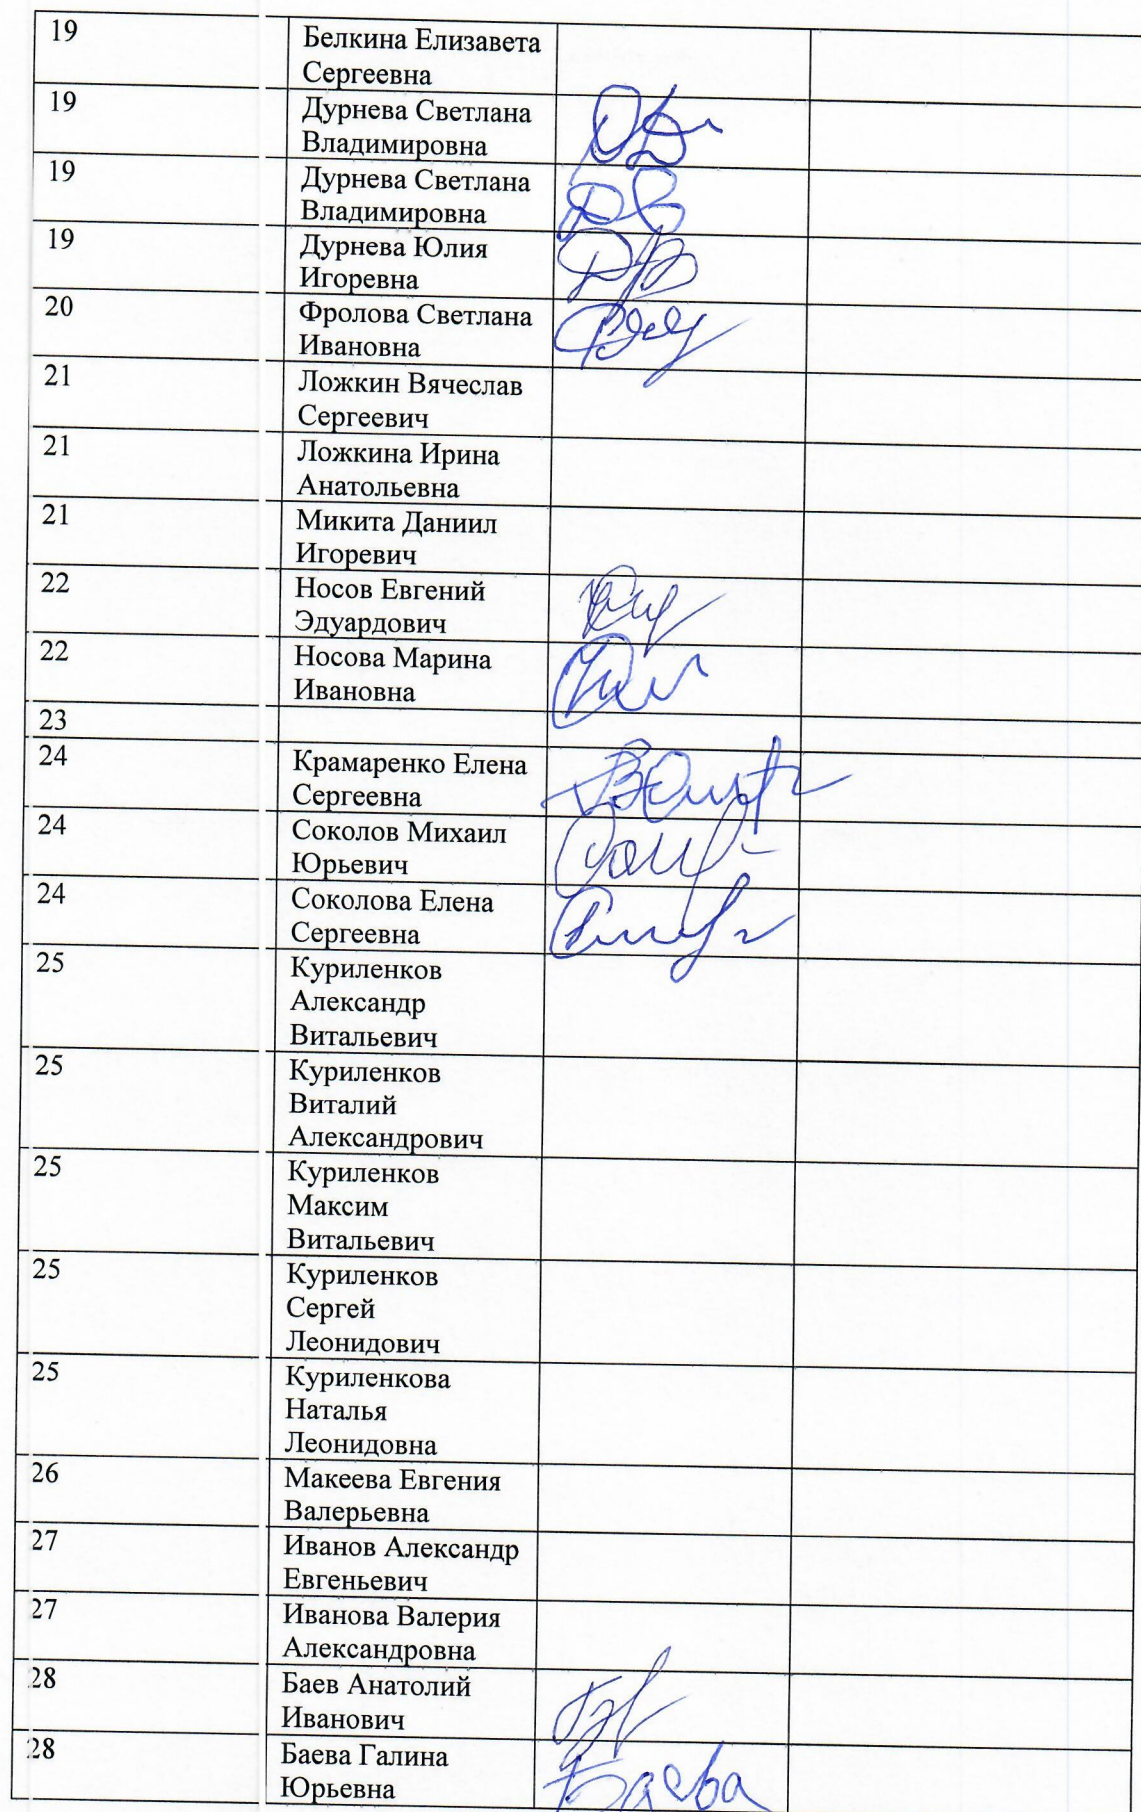 19 Белкина Елизавета
Сергеевна
19 Дурнева Светлана
Владимировна
19 Дурнева Светлана
Владимировна
19 Дурнева Юлия
Игоревна
20 Фролова Светлана
Ивановна
21 Ложкин Вячеслав
Сергеевич
21 Ложкина Ирина
Анатольевна
21 Микита Даниил
Игоревич
22 Носов Евгений
Эдуардович
22 Носова Марина
Ивановна
23
24 Крамаренко Елена
Сергеевна
24 Соколов Михаил
Юрьевич
24 Соколова Елена
Сергеевна
25 Куриленков
Александр
Витальевич
25 Куриленков
Виталий
Александрович
25 Куриленков
Максим
Витальевич
25 Куриленков
Сергей
Леонидович
25 Куриленкова
Наталья
Леонидовна
26 Макеева Евгения
Валерьевна
27 Иванов Александр
Евгеньевич
27 Иванова Валерия
Александровна
28 Баев Анатолий
Иванович
28 Баева Галина
Юрьевна Баева